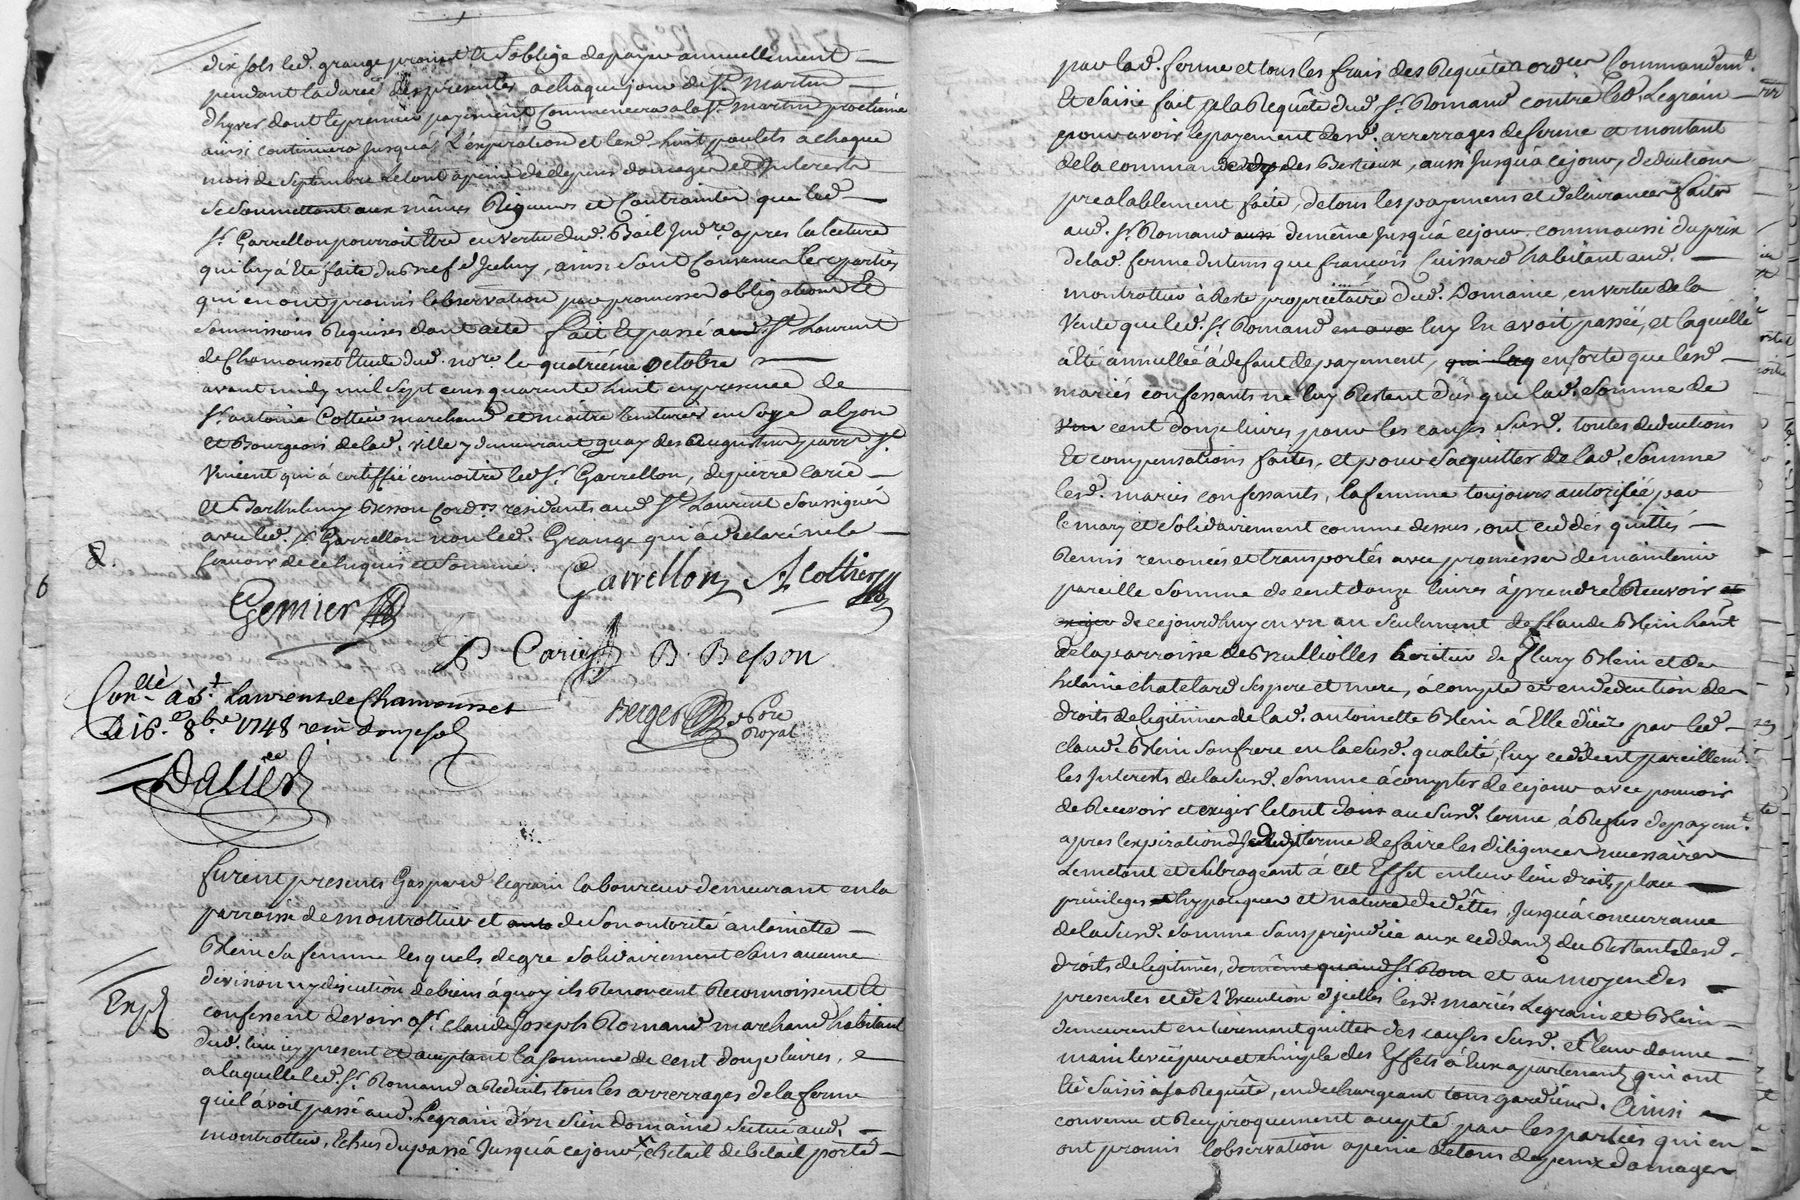 dix sols led. grange promet et s'oblige de payer annuellement
pendant la durée des presentes a chaque jour de St. Martin
d'hyver dont le premier payement commencera a la St. Martin prochaine
ainsi continuera jusqu'à l'expiration et lesd. huit poulets a chaque
mois de septembre le tout à peine de depens domages et interests
se soumettant aux mêmes rigueurs et contraintes que led.
Sr. Garrellon pourroit être en vertu dud. Bail Judre. apres la lecture
qui luy à été faite du bref d'Iceluy, ainsi sont convenues les parties
qui en ont promis l'observation par promesses obligations et
soumissions requises dont acte fait et passé aud. St. Laurent
de Chamousset Etude dud. nore. le quatrième octobre
avant midy mil sept cens quarante huit en presence de
Sr. antoine Cottier marchand et maitre teinturier en soye a lyon
et Bourgeois de lad. ville y demeurant quay des Augustins parroisse St.
Vincent qui à certiffié connoitre led. Sr. Garrellon, de pierre Carié
et Barthelemy Besson Cordrs. residants aud. St. Laurent soussignés
avec led. Sr. Garrellon non led. Grange qui à declaré ne le
sçavoir de ce enquis et sommé.
Garrellon A Cottier
Gernier
P Carié B. Besson
Con.lé à St. Laurens de Chamousset
Le 16e. 8bre. 1748 reçu douze sols
Berger Nore Royal
Dalier
furent presents Gaspard Legrain laboureur demeurant en la
parroisse de montrottier et auto de son autorité antoinette
Blein sa femme lesquels de gré solidairement sans aucune
division ny discution de biens à quoy ils renoncent reconnoissent et
Expé
confessent devoir a Sr. Claude Joseph Romand marchand habitant
dud. lieu icy present et acceptant la somme de cent douze livres,
a laquelle led. Sr. Romand a reduit tous les arrerages de la ferme
qu'il avoit passé aud. Legrain d'un sien domaine scitué aud.
montrottier, Echus du passé jusqu'à ce jour, chetail de betail porté
par lad. ferme et tous les frais des Requete ordres Commandemt.
Et saisie fait a la Requête dud. Sr. Romand contre led. Legrain
pour avoir le payement desd. arrerages de ferme et montant
de la commande des Bestiaux, aussi jusqu'à ce jour, deduction
prealablement faite, de tous les payemens et delivrances faits
aud. Sr. Romand aussi de même jusqu'à ce jour, comm'aussi du prix
de lad. ferme du tems que françois Cuissard habitant aud.
montrottier à resté proprietaire dud. Domaine, en vertu de la
Vente que led. Sr. Romand en avo luy En avoit passée, et laquelle
à été annullée à defaut de payement, qui luy en sorte que lesd.
mariés confessants ne luy restent dûs que lad. somme de
Vin cent douze livres pour les causes susd. toutes deductions
Et compensations faites, et pour s'acquitter de lad. somme
lesd. mariés confessants, la femme toujours autorisée par
le mary et solidairement comme dessus, ont ceddés quittés
Remis renoncés et transportés avec promesse de maintenir
pareille somme de cent douze livres à prendre Recevoir et
exiger de ce jourdhuy en un an seulement de Claude Blein h.ant
de la parroisse de Brullioles heritier de fleury Blein et de
helaine chatelard ses pere et mere, à compte et en deduction des
droits de legitimes de lad. antoinette Blein à Elle dûs par led.
claud. Blein son frere en la susd. qualité, luy ceddent pareillemt.
les Interests de la susd. somme à compter de ce jour avec pouvoir
de Recevoir et exiger le tout dans au susd. terme, à Refus de payemt.
apres l'expiration dudit terme de faire les diligences necessaires
Le metant et subrogeant à cet Effet en leur lieu droits place
privileges et hypoteques et nature de dettes, jusqu'à concurrance
de la susd. somme sans prejudice aux ceddants du Restant desd.
droits de legitimes, de même quand Sr. Rom et au moyen des
presentes et de l'Execution d'jcelles lesd. mariés Legrain et Blein
demeurent entierement quittes des causes susd. Et leur donne
main levée pure et simple des Effets à Eux apartenant qui ont
été saisis à sa Requête, en dechargeant tous gardiens. Ainsi
convenu et reciproquement accepté par les parties qui en
ont promis l'observation a peine de tous depens domages